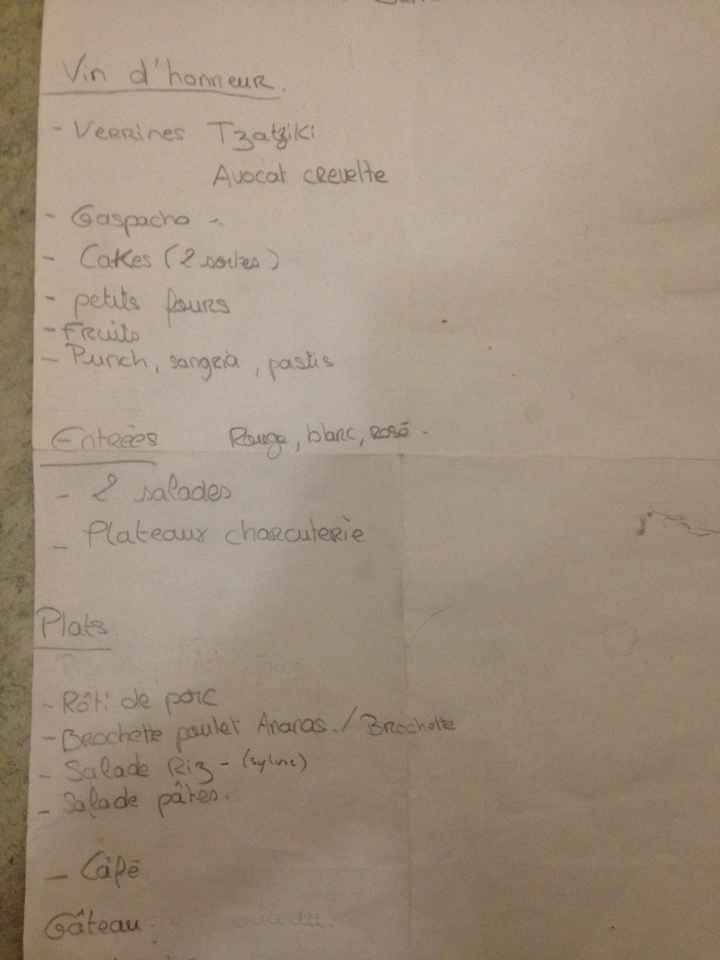 Vin d'honneur.
- Verrines Tzatziki
Avocat crevette
- Gaspacho -
- Cakes (2 sortes)
- petits fours
- Fruits
- Punch, sangria, pastis
Entrées Rouge, blanc, rosé -
- 2 salades
- Plateaux charcuterie
Plats
- Rôti de porc
- Brochette poulet Ananas / Brochette
- Salade Riz - (sylvie)
- Salade pâtes.
- Câfé
Gâteau